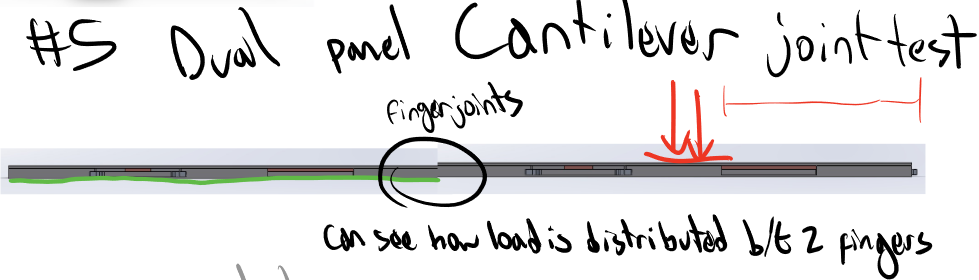 #5 Dual panel Cantilever joint test
fingerjoints
can see how load is distributed b/t 2 fingers